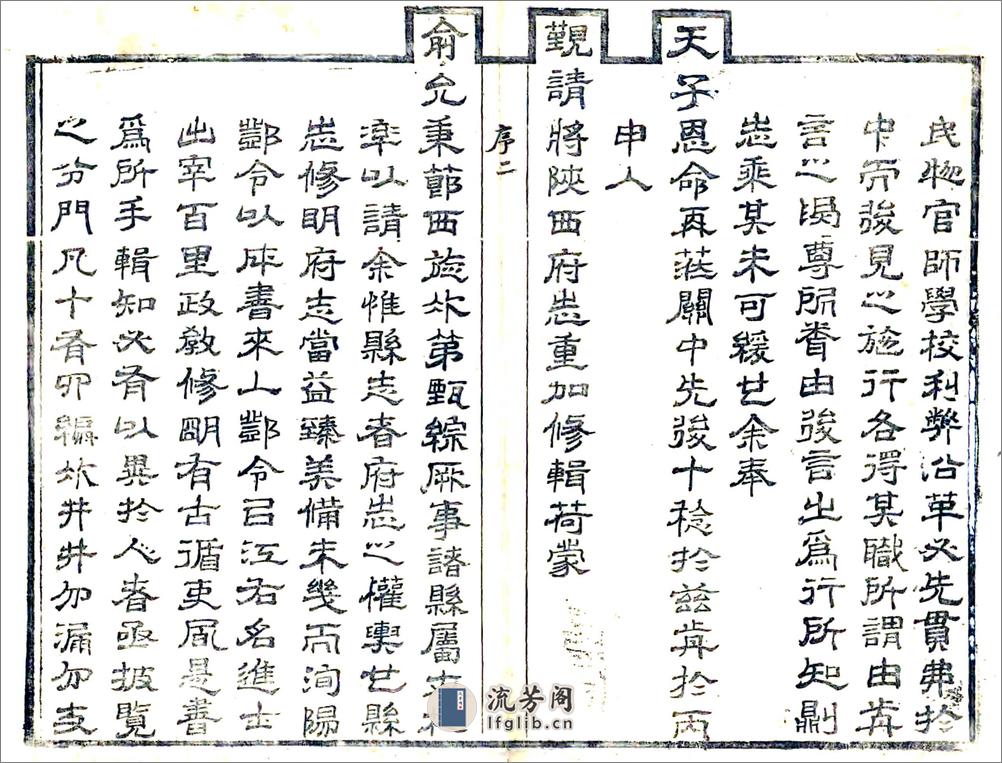 民物官師學校利弊沿革必先貫弗於
中而後見之施行各得其職所謂由前
言之爲尊所聞由後言之爲行所知則
志乘其未可緩也余奉
天子恩命再莅關中先後十稔於茲前於丙
申入
覲請將陝西府志重加修輯荷蒙
序二
俞允秉節西旋次第甄綜厥事諸縣屬志
率以請余惟縣志者府志之權輿也縣
志修明府志當益臻美備未幾而洵陽
鄧令以成書來上鄧令吕江右名進士
出宰百里政敎修明有古循吏風是書
爲所手輯知必有以異於人者亟披覽
之分門凡十有四編次井井勿漏勿支
流芳阁
lfglib.cn